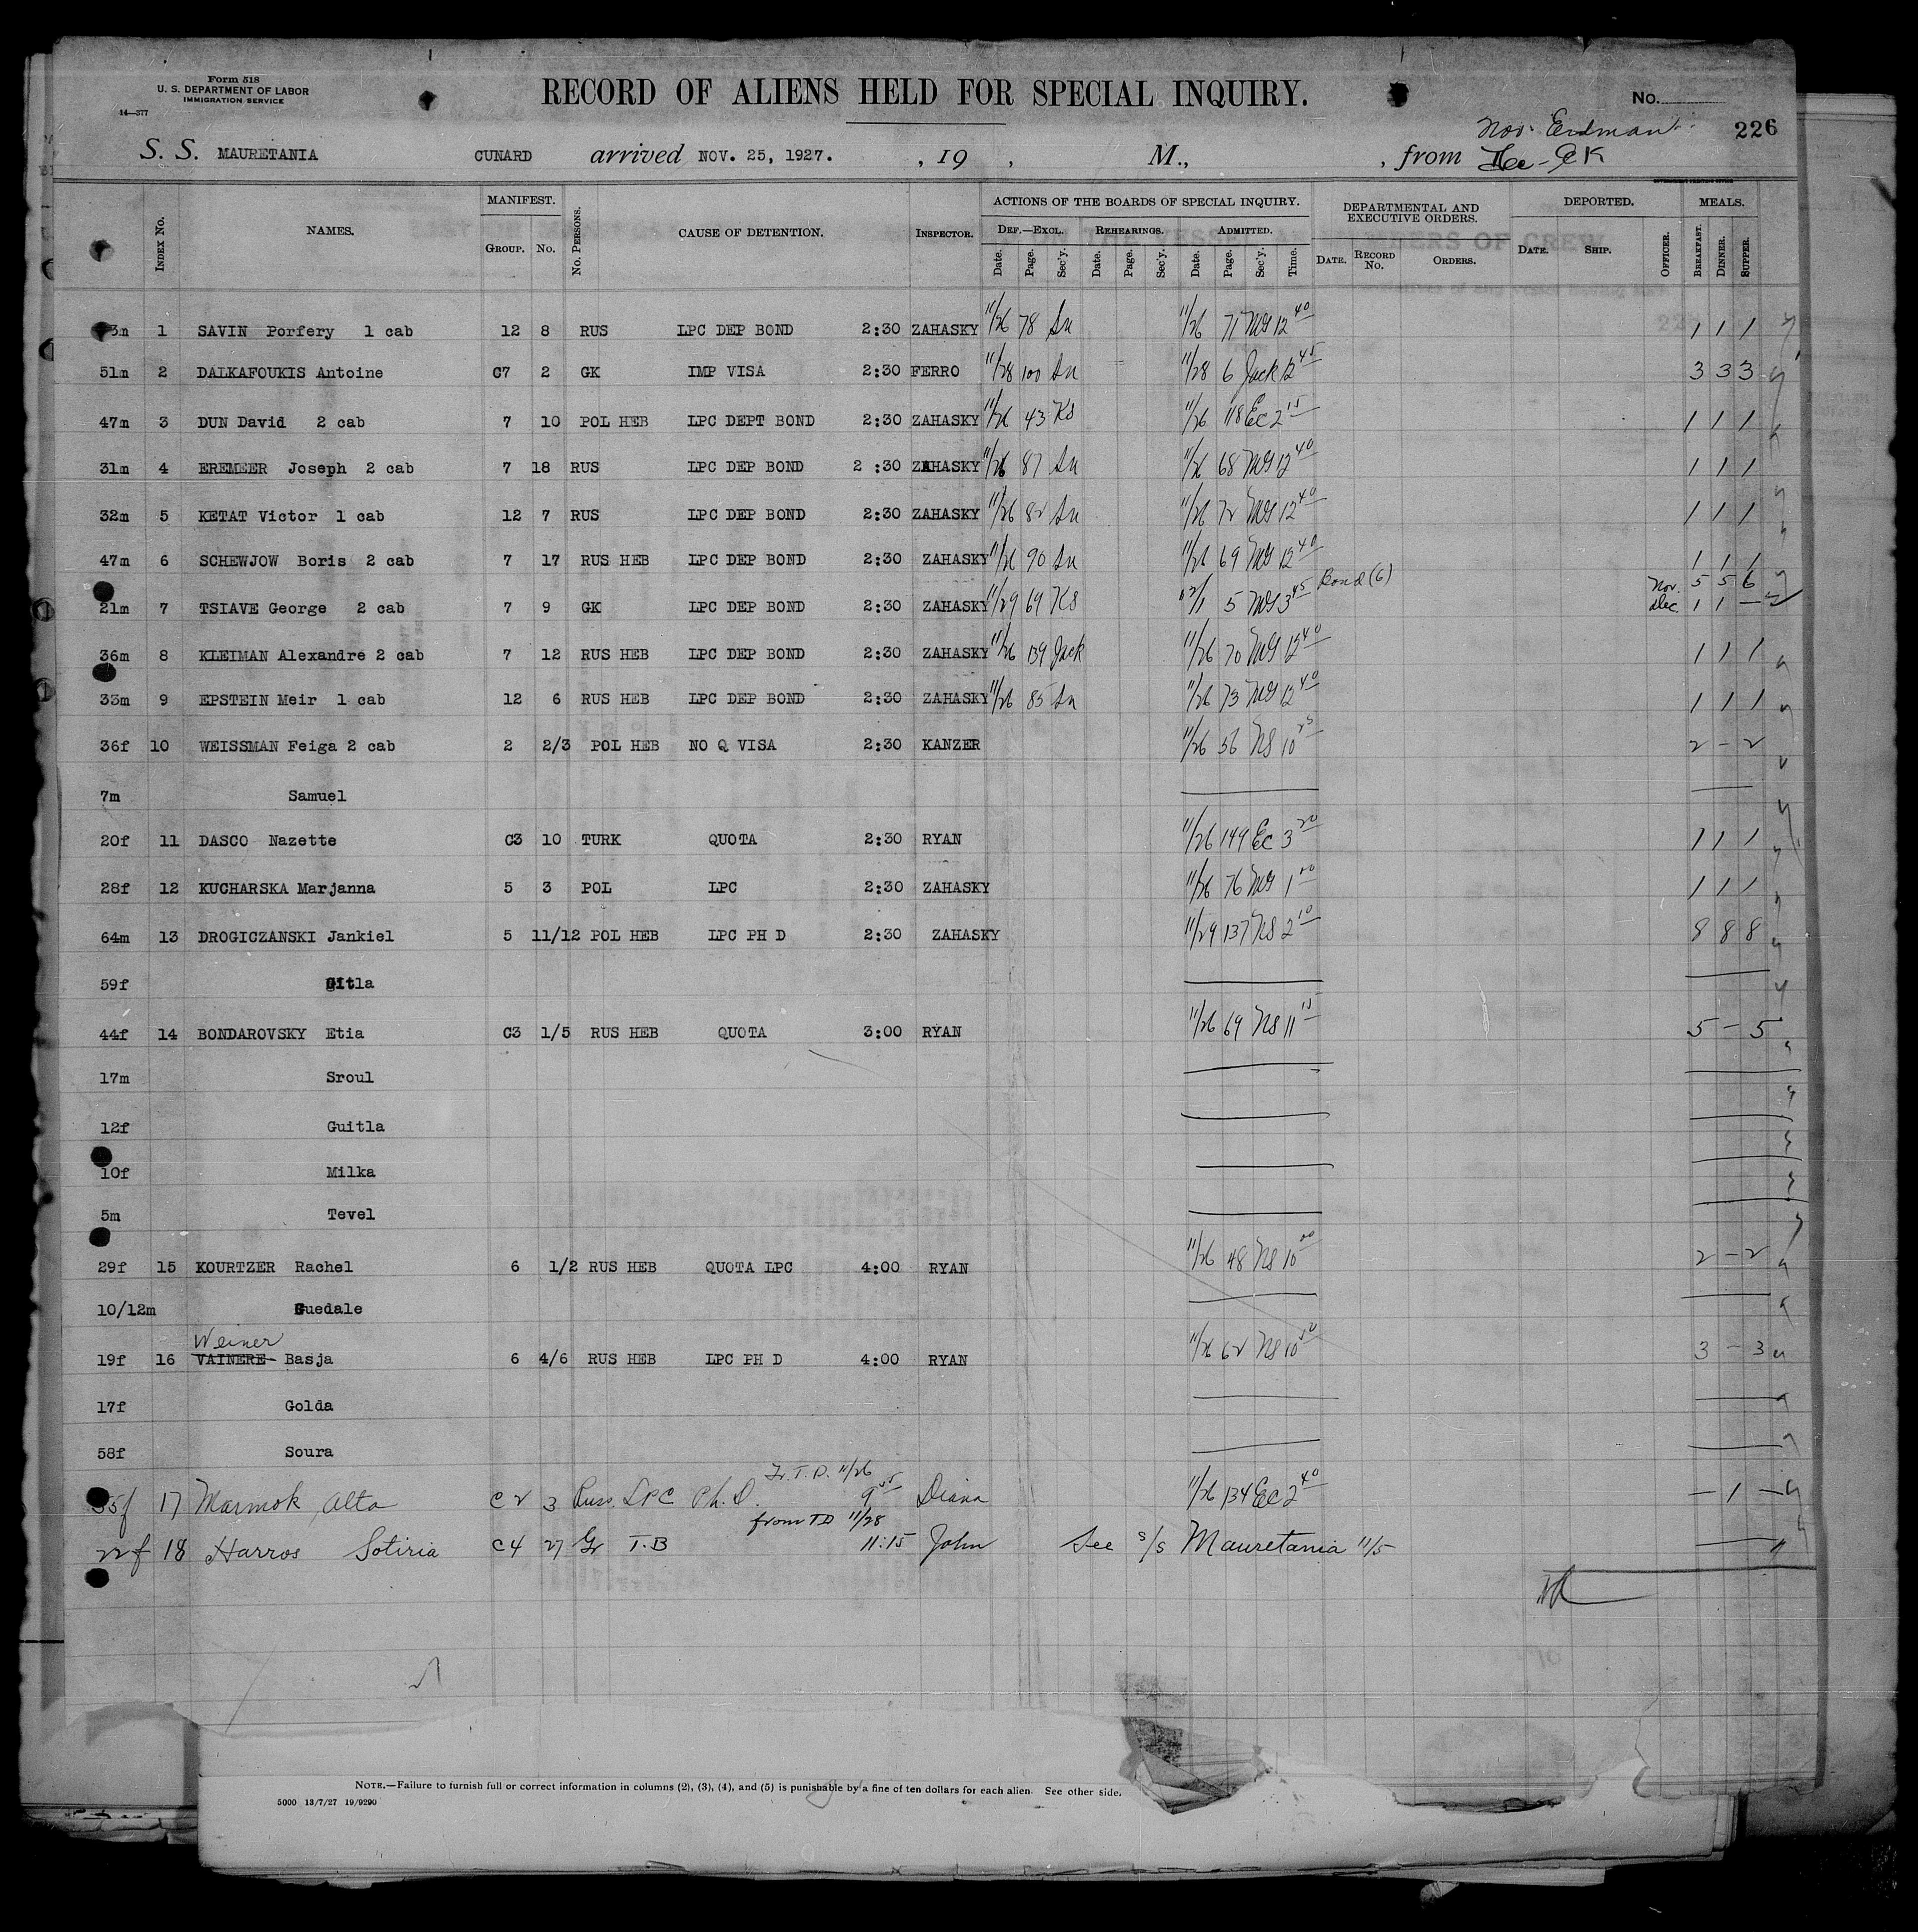 Form 518
U. S. DEPARTMENT OF LABOR
IMMIGRATION SERVICE
14—377
RECORD OF ALIENS HELD FOR SPECIAL INQUIRY.
No.
226
Nov. Erdman
S. S. MAURETANIA CUNARD arrived NOV. 25, 1927. , 19 , M., , from
MANIFEST. ACTIONS OF THE BOARDS OF SPECIAL INQUIRY. DEPARTMENTAL AND EXECUTIVE ORDERS. DEPORTED. MEALS.
Index No. NAMES. GROUP. No. No. PERSONS. CAUSE OF DETENTION. INSPECTOR. DEF.—EXCL. REHEARINGS. ADMITTED.
Date. Page. Sec'y. Date. Page. Sec'y. Date. Page. Sec'y. Time. DATE. RECORD No. ORDERS. DATE. SHIP. OFFICER. BREAKFAST. DINNER. SUPPER.
3m 1 SAVIN Porfery 1 cab 12 8 RUS LPC DEP BOND 2:30 ZAHASKY 11/26 78 Sn 11/26 71 MG 12 40 1 1 1
51m 2 DALKAFOUKIS Antoine C7 2 GK IMP VISA 2:30 FERRO 11/28 100 Sn 11/28 6 Jack 12 45 3 3 3
47m 3 DUN David 2 cab 7 10 POL HEB LPC DEPT BOND 2:30 ZAHASKY 11/26 43 KS 11/26 118 EC 2 15 1 1 1
31m 4 EREMEER Joseph 2 cab 7 18 RUS LPC DEP BOND 2 :30 ZAHASKY 11/26 87 Sn 11/26 68 MG 12 40 1 1 1
32m 5 KETAT Victor 1 cab 12 7 RUS LPC DEP BOND 2:30 ZAHASKY 11/26 82 Sn 11/26 72 MG 12 40 1 1 1
47m 6 SCHEWJOW Boris 2 cab 7 17 RUS HEB LPC DEP BOND 2:30 ZAHASKY 11/26 90 Sn 11/26 69 MG 12 40 1 1 1
Bond (6) Nov. 5 5 6
21m 7 TSIAVE George 2 cab 7 9 GK LPC DEP BOND 2:30 ZAHASKY 11/29 69 KS 12/1 5 MG 3 45 Dec. 1 1 —
36m 8 KLEIMAN Alexandre 2 cab 7 12 RUS HEB LPC DEP BOND 2:30 ZAHASKY 11/26 139 Jack 11/26 70 MG 12 40 1 1 1
33m 9 EPSTEIN Meir 1 cab 12 6 RUS HEB LPC DEP BOND 2:30 ZAHASKY 11/26 85 Sn 11/26 73 MG 12 40 1 1 1
36f 10 WEISSMAN Feiga 2 cab 2 2/3 POL HEB NO Q VISA 2:30 KANZER 11/26 56 NS 10 25 2 — 2
7m Samuel
20f 11 DASCO Nazette C3 10 TURK QUOTA 2:30 RYAN 11/26 149 EC 3 20 1 1 1
28f 12 KUCHARSKA Marjanna 5 3 POL LPC 2:30 ZAHASKY 11/26 76 MG 1 00 1 1 1
64m 13 DROGICZANSKI Jankiel 5 11/12 POL HEB LPC PH D 2:30 ZAHASKY 11/29 137 NS 2 10 8 8 8
59f Gitla
44f 14 BONDAROVSKY Etia C3 1/5 RUS HEB QUOTA 3:00 RYAN 11/26 69 NS 11 15 5 — 5
17m Sroul
12f Guitla
10f Milka
5m Tevel
29f 15 KOURTZER Rachel 6 1/2 RUS HEB QUOTA LPC 4:00 RYAN 11/26 48 NS 10 00 2 — 2
10/12m Guedale
Weiner
19f 16 VAINERE Basja 6 4/6 RUS HEB LPC PH D 4:00 RYAN 11/26 62 NS 10 50 3 — 3
17f Golda
58f Soura
Fr. T.D. 11/26
55f 17 Marmok Alta C 2 3 Russ. LPC Ph. D. 9 Diana 11/26 134 EC 2 40 — 1 —
from TD 11/28
22f 18 Harros Sotiria C4 27 Gr T.B 11:15 John See s/s Mauretania 11/5
NOTE.—Failure to furnish full or correct information in columns (2), (3), (4), and (5) is punishable by a fine of ten dollars for each alien. See other side.
5000 13/7/27 19/9290